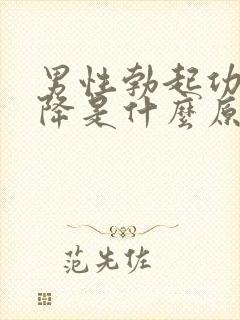 男性勃起功
降是什麼原
范先佐